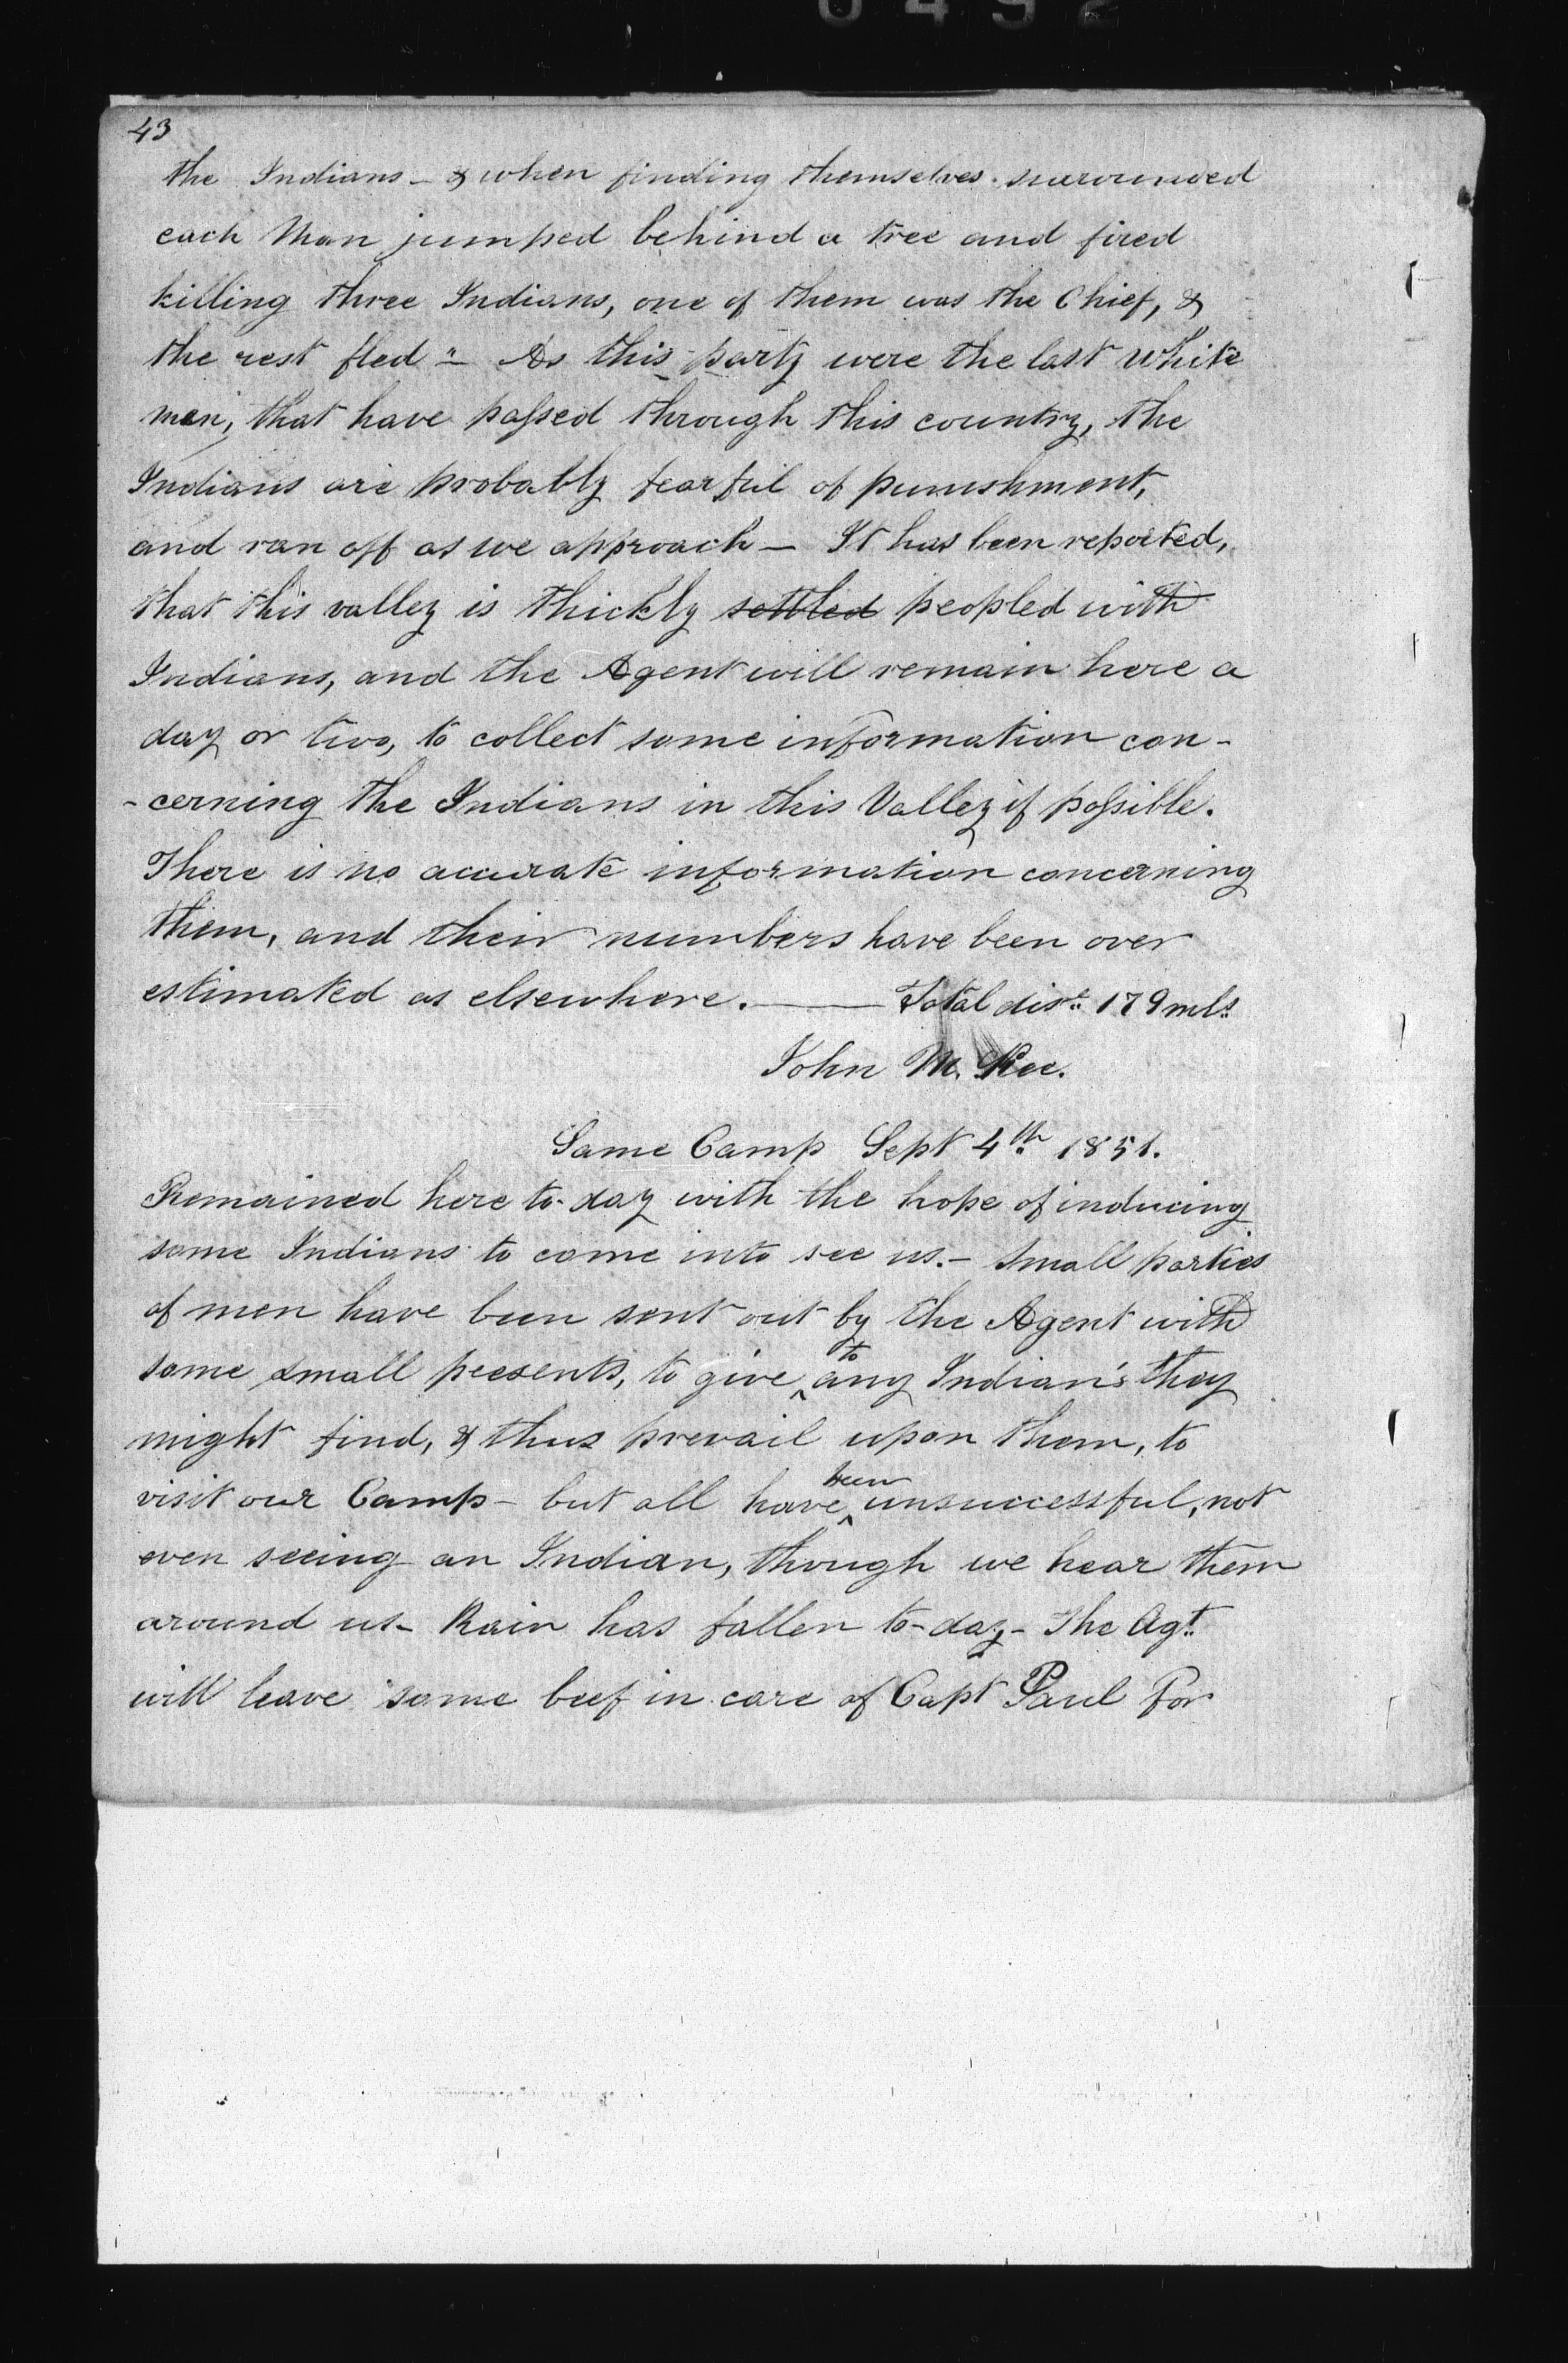 0492
43
the Indians - & when finding themselves surrounded
each Man jumped behind a tree and fired
killing three Indians, one of them was the Chief, &
the rest fled - As this party were the last White
men, that have passed through this country, the
Indians are probably fearful of punishment,
and ran off as we approach - It has been reported,
that this valley is thickly settled peopled with
Indians, and the Agent will remain here a
day or two, to collect some information con-
-cerning the Indians in this Valley if possible.
There is no accurate information concerning
them, and their numbers have been over
estimated as elsewhere. — Total dist. 179 mls
John McKee.
Same Camp Sept 4th 1851.
Remained here to-day with the hope of inducing
some Indians to come into see us. - Small parties
of men have been sent out by the Agent with
some small presents, to give ^to any Indian's they
might find, & thus prevail upon them, to
visit our Camp - but all have ^been unsuccessful, not
even seeing an Indian, though we hear them
around us - Rain has fallen to-day - The Agt.
will leave some beef in care of Capt Paul for